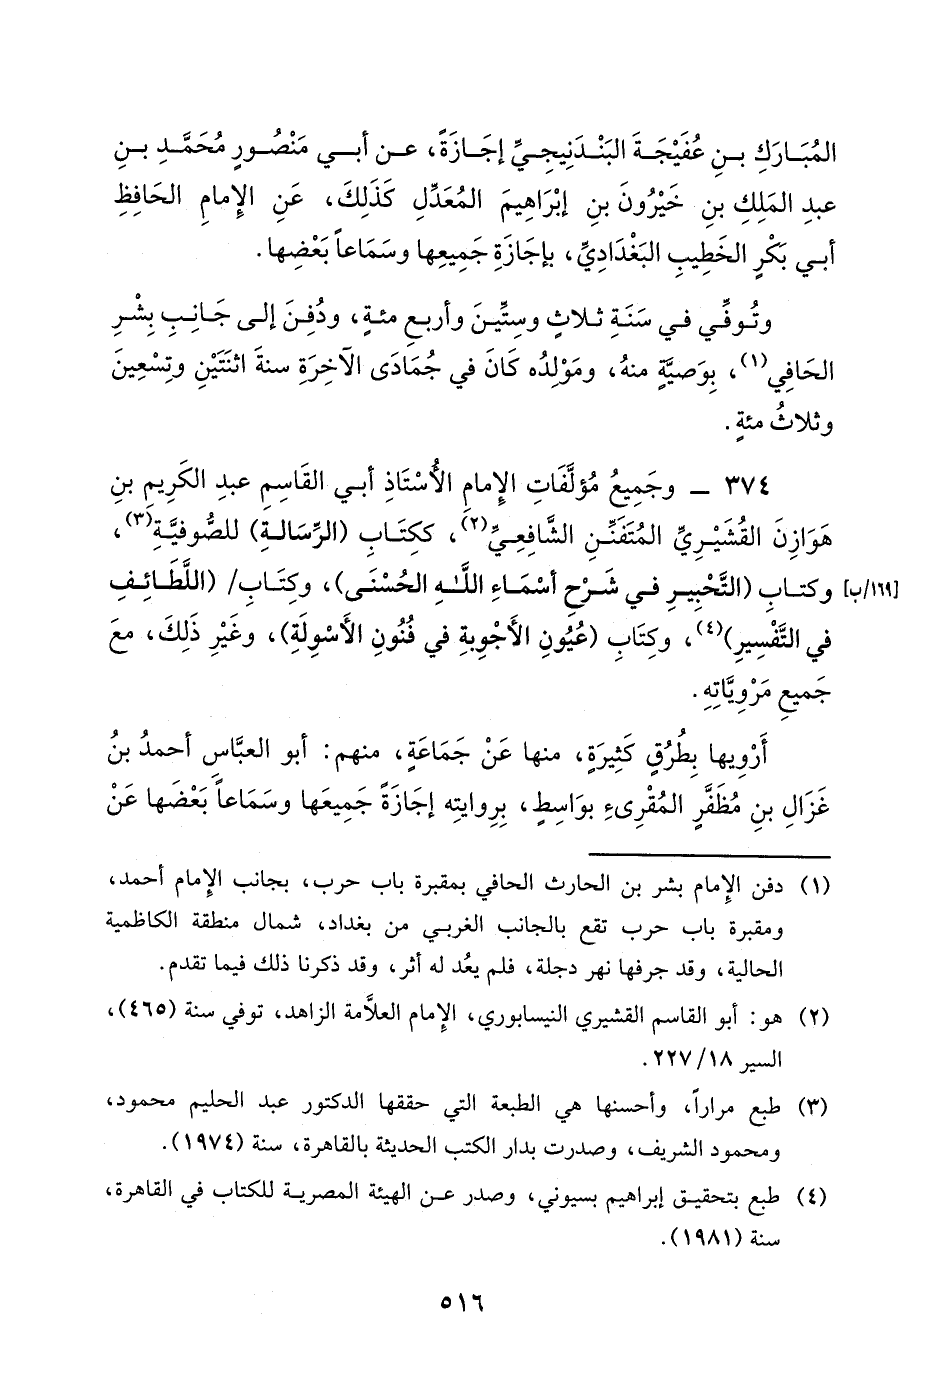 المُبَارَكِ بـنِ عُفَيْجَةَ البَنْدَنِيجِيِّ إجَازَةً، عـن أبـي مَنْصُورٍ مُحَمَّدِ بـنِ
عبدِ المَلِكِ بنِ خَيْرُونَ بنِ إبْرَاهِيمَ المُعَدَّلِ كَذَلِكَ، عَنِ الإِمامِ الحَافِظِ
أبـي بَكْرٍ الخَطِيبِ البَغْدَادِيِّ، بإجَازَةِ جَمِيعِها وسَمَاعاً بَعْضِها.
وتُوفِّي في سَنَةِ ثلاثٍ وستِّينَ وأربعِ مئةٍ، ودُفِنَ إلى جَانِبِ بِشْرِ
الحَافِي(١)، بِوَصيَّةٍ منهُ، ومَوْلِدُه كَانَ في جُمَادَى الآخِرَةِ سنةَ اثنَتَيْنِ وتِسْعِينَ
وثلاثُ مئةٍ.
٣٧٤ ــ وجَمِيعُ مُؤلَّفَاتِ الإِمامِ الأُسْتَاذِ أبـي القَاسِمِ عبدِ الكَرِيمِ بنِ
هَوَازِنَ القُشَيْرِيِّ المُتَفَنِّنِ الشَّافِعِيِّ(٢)، ككِتَابِ (الرِّسَالةِ) للصُّوفيَّةِ(٣)،
[١٦٩/ب] وكتابِ (التَّحْبِيرِ في شَرْحِ أسْمَاءِ اللَّهِ الحُسْنَى)، وكِتَابِ/ (اللَّطَائِفِ
في التَّفْسِيرِ)(٤)، وكِتَابِ (عُيُونِ الأجْوِبةِ في فُنُونِ الأسْوِلَةِ)، وغَيْرِ ذَلِكَ، معَ
جَميعِ مَرْوِيَّاتِهِ.
أَرْوِيها بِطُرُقٍ كَثِيرَةٍ، منها عَنْ جَمَاعَةٍ، منهم: أبو العبَّاسِ أحمدُ بنُ
غَزَالِ بنِ مُظَفَّرٍ المُقْرِىءِ بوَاسِطٍ، بِرِوايتِه إجَازَةً جَمِيعَها وسَمَاعاً بَعْضَها عَنْ
(١) دفن الإِمام بشر بن الحارث الحافي بمقبرة باب حرب، بجانب الإِمام أحمد،
ومقبرة باب حرب تقع بالجانب الغربـي من بغداد، شمال منطقة الكاظمية
الحالية، وقد جرفها نهر دجلة، فلم يعُد له أثر، وقد ذكرنا ذلك فيما تقدم.
(٢) هو: أبو القاسم القشيري النيسابوري، الإِمام العلاَّمة الزاهد، توفي سنة (٤٦٥)،
السير ١٨/ ٢٢٧.
(٣) طبع مراراً، وأحسنها هي الطبعة التي حققها الدكتور عبد الحليم محمود،
ومحمود الشريف، وصدرت بدار الكتب الحديثة بالقاهرة، سنة (١٩٧٤).
(٤) طبع بتحقيق إبراهيم بسيوني، وصدر عن الهيئة المصرية للكتاب في القاهرة،
سنة (١٩٨١).
٥١٦